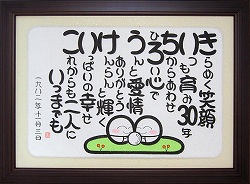 きらめく笑顔
いつも育み30年
ちからあわせ
ひろい心で
うんと愛情
ありがとう
けんらんと輝
いっぱいの幸せ
これからも二人に
いつまでも
一九八二年十一月三日